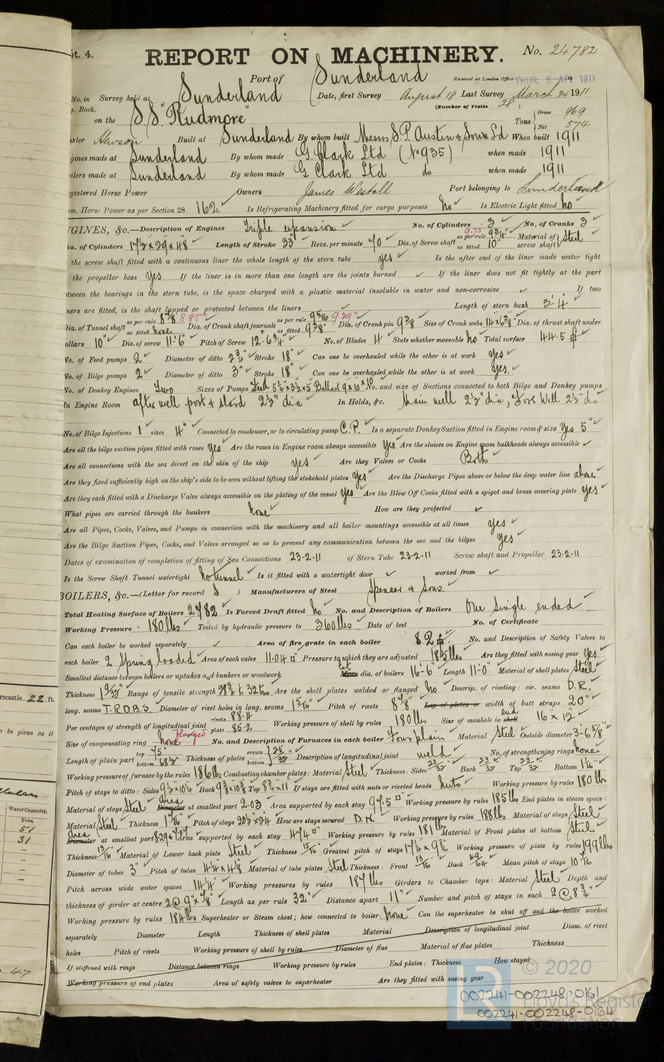 REPORT ON MACHINERY. No. 24782
Port of Sunderland Received at London Office THUR. 6 APR 1911
No. in Survey held at Sunderland Date, first Survey August 18 Last Survey March 24 1911
Book. (Number of Visits 28)
on the S.S. "Rudmore" Tons Gross 969 Net 574
Master Hawson Built at Sunderland By whom built Messrs S.P. Austin & Sons Ld When built 1911
Engines made at Sunderland By whom made G. Clark Ltd (No 935) when made 1911
Boilers made at Sunderland By whom made G Clark Ltd do when made 1911
Registered Horse Power Owners James Westoll Port belonging to Sunderland
Nom. Horse Power as per Section 28 162 Is Refrigerating Machinery fitted for cargo purposes no Is Electric Light fitted no
ENGINES, &c.—Description of Engines Triple expansion No. of Cylinders 3 No. of Cranks 3
Dia. of Cylinders 17½ x 29 x 48 Length of Stroke 33" Revs. per minute 70 Dia. of Screw shaft as per rule as fitted 10" Material of screw shaft Steel
the screw shaft fitted with a continuous liner the whole length of the stern tube yes Is the after end of the liner made water tight
the propeller boss yes If the liner is in more than one length are the joints burned If the liner does not fit tightly at the part
between the bearings in the stern tube, is the space charged with a plastic material insoluble in water and non-corrosive If two
liners are fitted, is the shaft lapped or protected between the liners Length of stern bush 3'-4"
Dia. of Tunnel shaft as per rule as fitted none Dia. of Crank shaft journals as per rule as fitted 9⅜" Dia. of Crank pin 9⅜ Size of Crank webs Dia. of thrust shaft under
collars 10" Dia. of screw 11'-6" Pitch of Screw No. of Blades 4 State whether moveable no Total surface 44.5
No. of Feed pumps 2 Diameter of ditto Stroke 18" Can one be overhauled while the other is at work yes
No. of Bilge pumps 2 Diameter of ditto 3" Stroke 18" Can one be overhauled while the other is at work yes
No. of Donkey Engines Two Sizes of Pumps and size of Suctions connected to both Bilge and Donkey pumps
In Engine Room after well port & starb 2½" dia In Holds, &c. Main well 2½" dia, Fore Well 2½" dia
No. of Bilge Injections 1 sizes 4" Connected to condenser, or to circulating pump C.P. Is a separate Donkey Suction fitted in Engine room & size yes 5"
Are all the bilge suction pipes fitted with roses yes Are the roses in Engine room always accessible yes Are the sluices on Engine room bulkheads always accessible
Are all connections with the sea direct on the skin of the ship yes Are they Valves or Cocks Both
Are they fixed sufficiently high on the ship's side to be seen without lifting the stokehold plates yes Are the Discharge Pipes above or below the deep water line above
Are they each fitted with a Discharge Valve always accessible on the plating of the vessel yes Are the Blow Off Cocks fitted with a spigot and brass covering plate yes
What pipes are carried through the bunkers none How are they protected
Are all Pipes, Cocks, Valves, and Pumps in connection with the machinery and all boiler mountings accessible at all times yes
Are the Bilge Suction Pipes, Cocks, and Valves arranged so as to prevent any communication between the sea and the bilges yes
Dates of examination of completion of fitting of Sea Connections 23-2-11 of Stern Tube 23-2-11 Screw shaft and Propeller 23-2-11
Is the Screw Shaft Tunnel watertight no tunnel Is it fitted with a watertight door worked from
BOILERS, &c.—(Letter for record S) Manufacturers of Steel Spencer & Sons.
Total Heating Surface of Boilers 2782 Is Forced Draft fitted no No. and Description of Boilers One Single ended
Working Pressure 180 lbs Tested by hydraulic pressure to 360 lbs Date of test No. of Certificate
Can each boiler be worked separately Area of fire grate in each boiler 82 No. and Description of Safety Valves to
each boiler 2 Spring Loaded Area of each valve 11.04 Pressure to which they are adjusted 185 lbs Are they fitted with easing gear yes
Smallest distance between boilers or uptakes and bunkers or woodwork dia. of boilers 16'-6" Length 11'-0" Material of shell plates Steel
Thickness Range of tensile strength 28½ to 32 tons Are the shell plates welded or flanged no Descrip. of riveting: cir. seams D.R.
long. seams T.R.D.B.S. Diameter of rivet holes in long. seams Pitch of rivets Lap of plates or width of butt straps 20"
Per centages of strength of longitudinal joint rivets 88.4 plate 85.2 Working pressure of shell by rules 180 lbs Size of manhole in end 16 x 12"
Size of compensating ring flanged No. and Description of Furnaces in each boiler Four plain Material Steel Outside diameter 3-6⅝"
Length of plain part top bottom Thickness of plates crown bottom Description of longitudinal joint weld No. of strengthening rings none
Working pressure of furnace by the rules 186 lbs Combustion chamber plates: Material Steel Thickness: Sides Back Top Bottom
Pitch of stays to ditto: Sides Back Top If stays are fitted with nuts or riveted heads nuts Working pressure by rules 180 lb
Material of stays Steel Area at smallest part 2.03 Area supported by each stay 97.5 Working pressure by rules 185 lb End plates in steam space:
Material Steel Thickness Pitch of stays How are stays secured D.N. Working pressure by rules 188 lb Material of stays Steel
Area at smallest part Area supported by each stay 474 Working pressure by rules 181 lb Material of Front plates at bottom Steel
Thickness Material of Lower back plate Steel Thickness Greatest pitch of stays Working pressure of plate by rules 199 lbs
Diameter of tubes 3" Pitch of tubes Material of tube plates Steel Thickness: Front Back Mean pitch of stays
Pitch across wide water spaces 14¼" Working pressures by rules 187 lbs Girders to Chamber tops: Material Steel Depth and
thickness of girder at centre Length as per rule 32" Distance apart 11" Number and pitch of stays in each 2 @ 8¾"
Working pressure by rules 184 lbs Superheater or Steam chest; how connected to boiler none Can the superheater be shut off and the boiler worked
separately Diameter Length Thickness of shell plates Material Description of longitudinal joint Diam. of rivet
holes Pitch of rivets Working pressure of shell by rules Diameter of flue Material of flue plates Thickness
If stiffened with rings Distance between rings Working pressure by rules End plates: Thickness How stayed
Working pressure of end plates Area of safety valves to superheater Are they fitted with easing gear
© 2020
Lloyd's Register
Foundation
002241-002248-0161
002241-002248-0164
22 ft.
Water Capacity.
Tons.
51
31
47